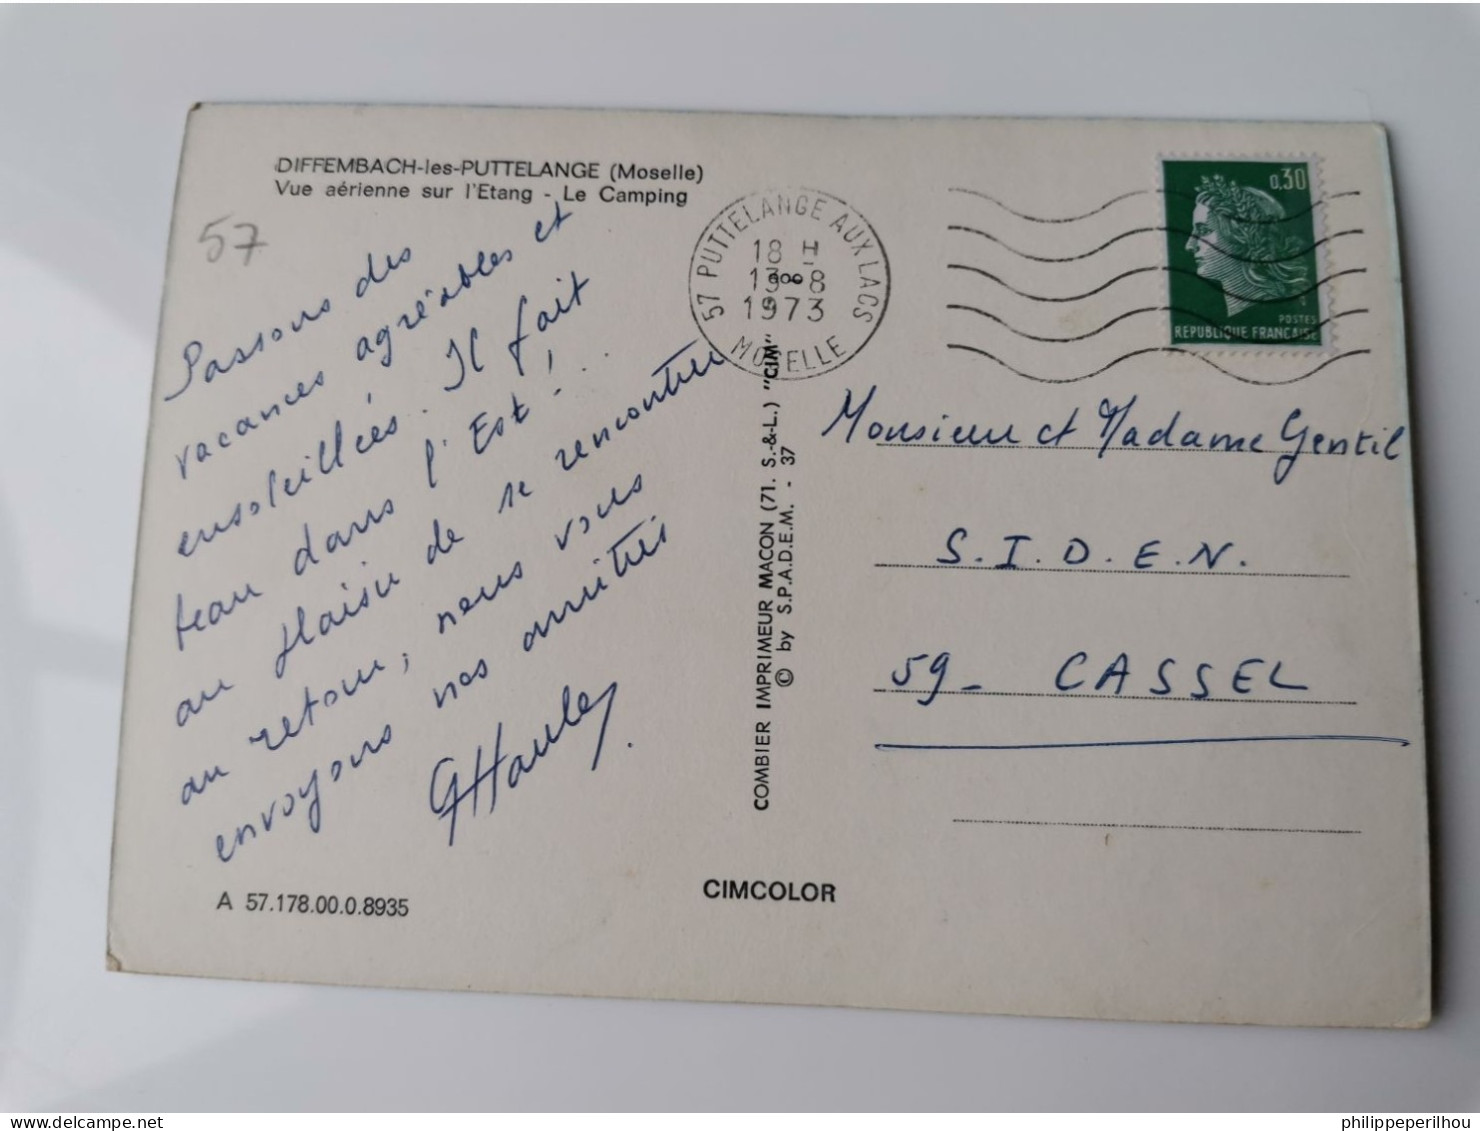 DIFFEMBACH-les-PUTTELANGE (Moselle)
Vue aérienne sur l'Etang - Le Camping
57
Passons des
vacances agréables et
ensoleillées. Il fait
beau dans l'Est !
au plaisir de se rencontrer
au retour, nous vous
envoyons nos amitiés
GHauley
A 57.178.00.0.8935
57 PUTTELANGE AUX LACS
18 H
13-8
1973
MOSELLE
COMBIER IMPRIMEUR MACON (71. S.-&-L.) "CIM"
© by S.P.A.D.E.M. - 37
CIMCOLOR
0,30
POSTES
REPUBLIQUE FRANCAISE
Monsieur et Madame Gentil
S.I.D.E.N.
59_ CASSEL
philippeperilhou